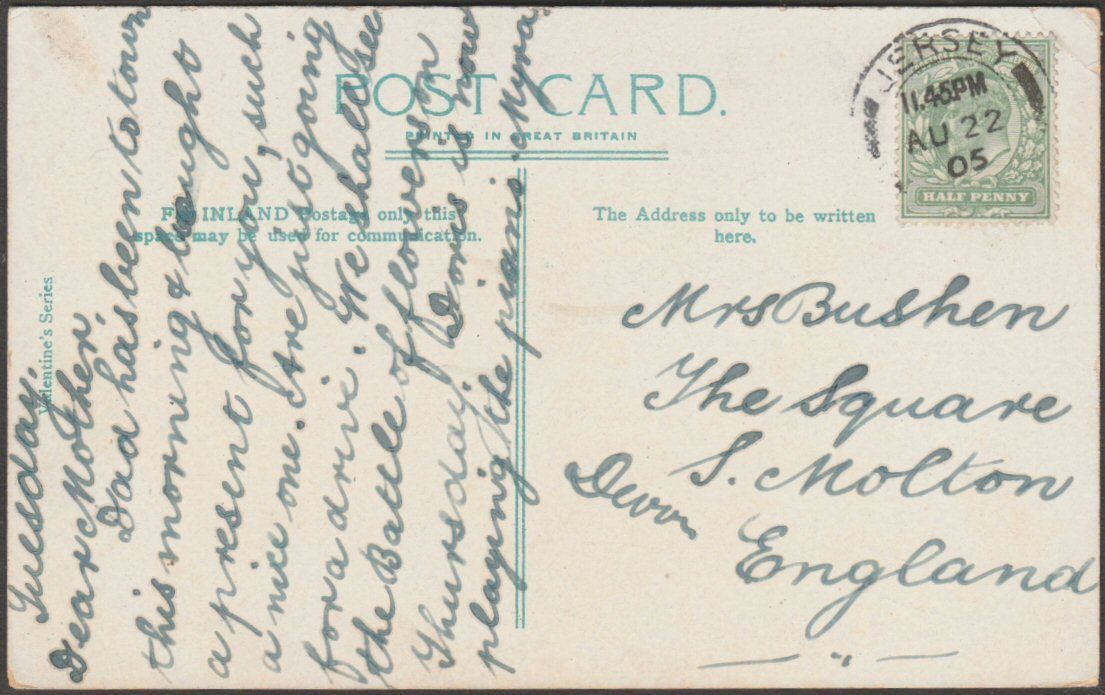 POST CARD.
PRINTED IN GREAT BRITAIN
For INLAND Postage only this
space may be used for communication.
The Address only to be written
here.
Valentine's Series
JERSEY
11.45PM
AU 22
05
HALF PENNY
Tuesday.
Dear Mother
Dad has been to town
this morning & bought
a present for you, such
a nice one. Are just going
for a drive. We shall see
the Battle of flowers on
Thursday. Doris is now
playing the piano. Myra
Mrs Bushen
The Square
S. Molton
Devon
England